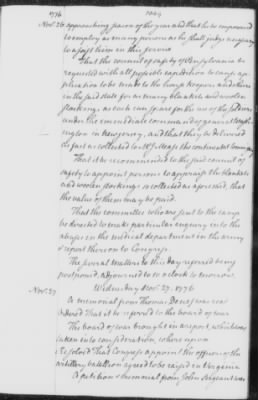 1776
Nov. 26 approaching season of the year and that he be empowered
to employ as many persons as he shall judge necessary
to assist him in this service
That the committee of safety of Pensylvania be
requested with all possible expedition to cause ap-
plication to be made to the house keepers and others
in the said state for as many blankets and woollen
stockings as each can spare for the use of the soldiers
under the immediate command of general Washing-
ton in New jersey, and that they be delivered
as fast as collected to Mr. Mease the continental Commissary
That it be recommended to the said council of
safety to appoint persons to appraise the blankets
and woolen stockings so collected as aforesaid, that
the value of them may be paid.
That the committee who are sent to the camp
be directed to make particular enquiry into the
abuses in the medical department in the army
& report thereon to Congress.
The several matters to this day referred being
postponed, adjourned to 10 o clock to morrow.
Wednesday Nov. 27. 1776
Nov. 27 A memorial from Thomas Dewees was read
Ordered That it be referred to the board of war
The board of war brought in a report, which was
taken into consideration, whereupon
Resolved That Congress appoint the officers of the
artillery battallion agreed to be raised in Virginia
A petition & memorial from John Sergeant was